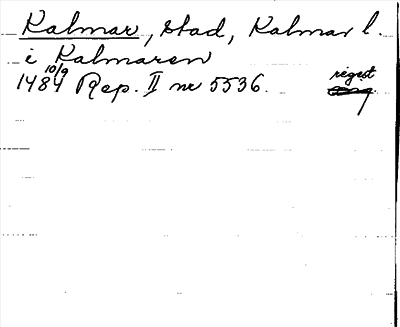 Kalmar, stad, Kalmar l.
i Kalmaren
1484 10/9 Rep. II nr 5536. regest